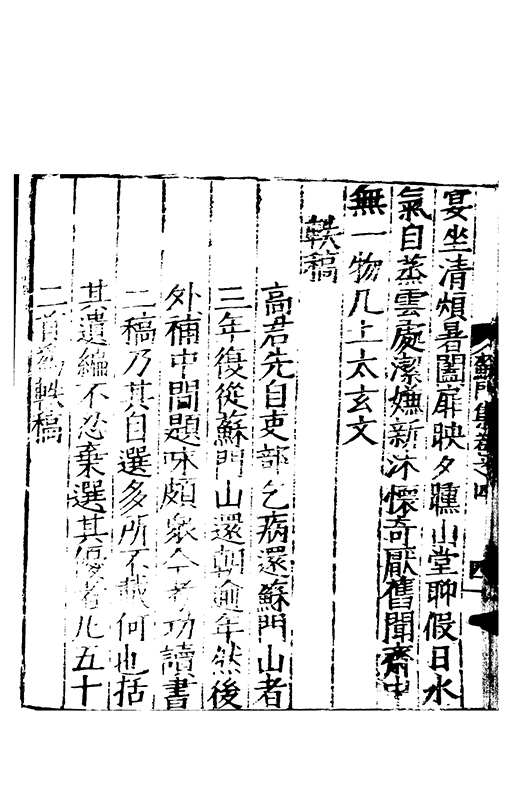 宴坐清煩暑闔屏映夕曛山堂聊假日水
氣自蒸雲處潔嫌新沐懷奇厭舊聞齋中
無一物几上太玄文
軼稿
高君先自吏部乞病還蘇門山者
三年復從蘇門山還朝逾年然後
外補中間題咏頗衆今考功讀書
二稿乃其自選多所不載何也括
其遺編不忍棄選其優者凡五十
二首為軼稿
蘇門集卷之四